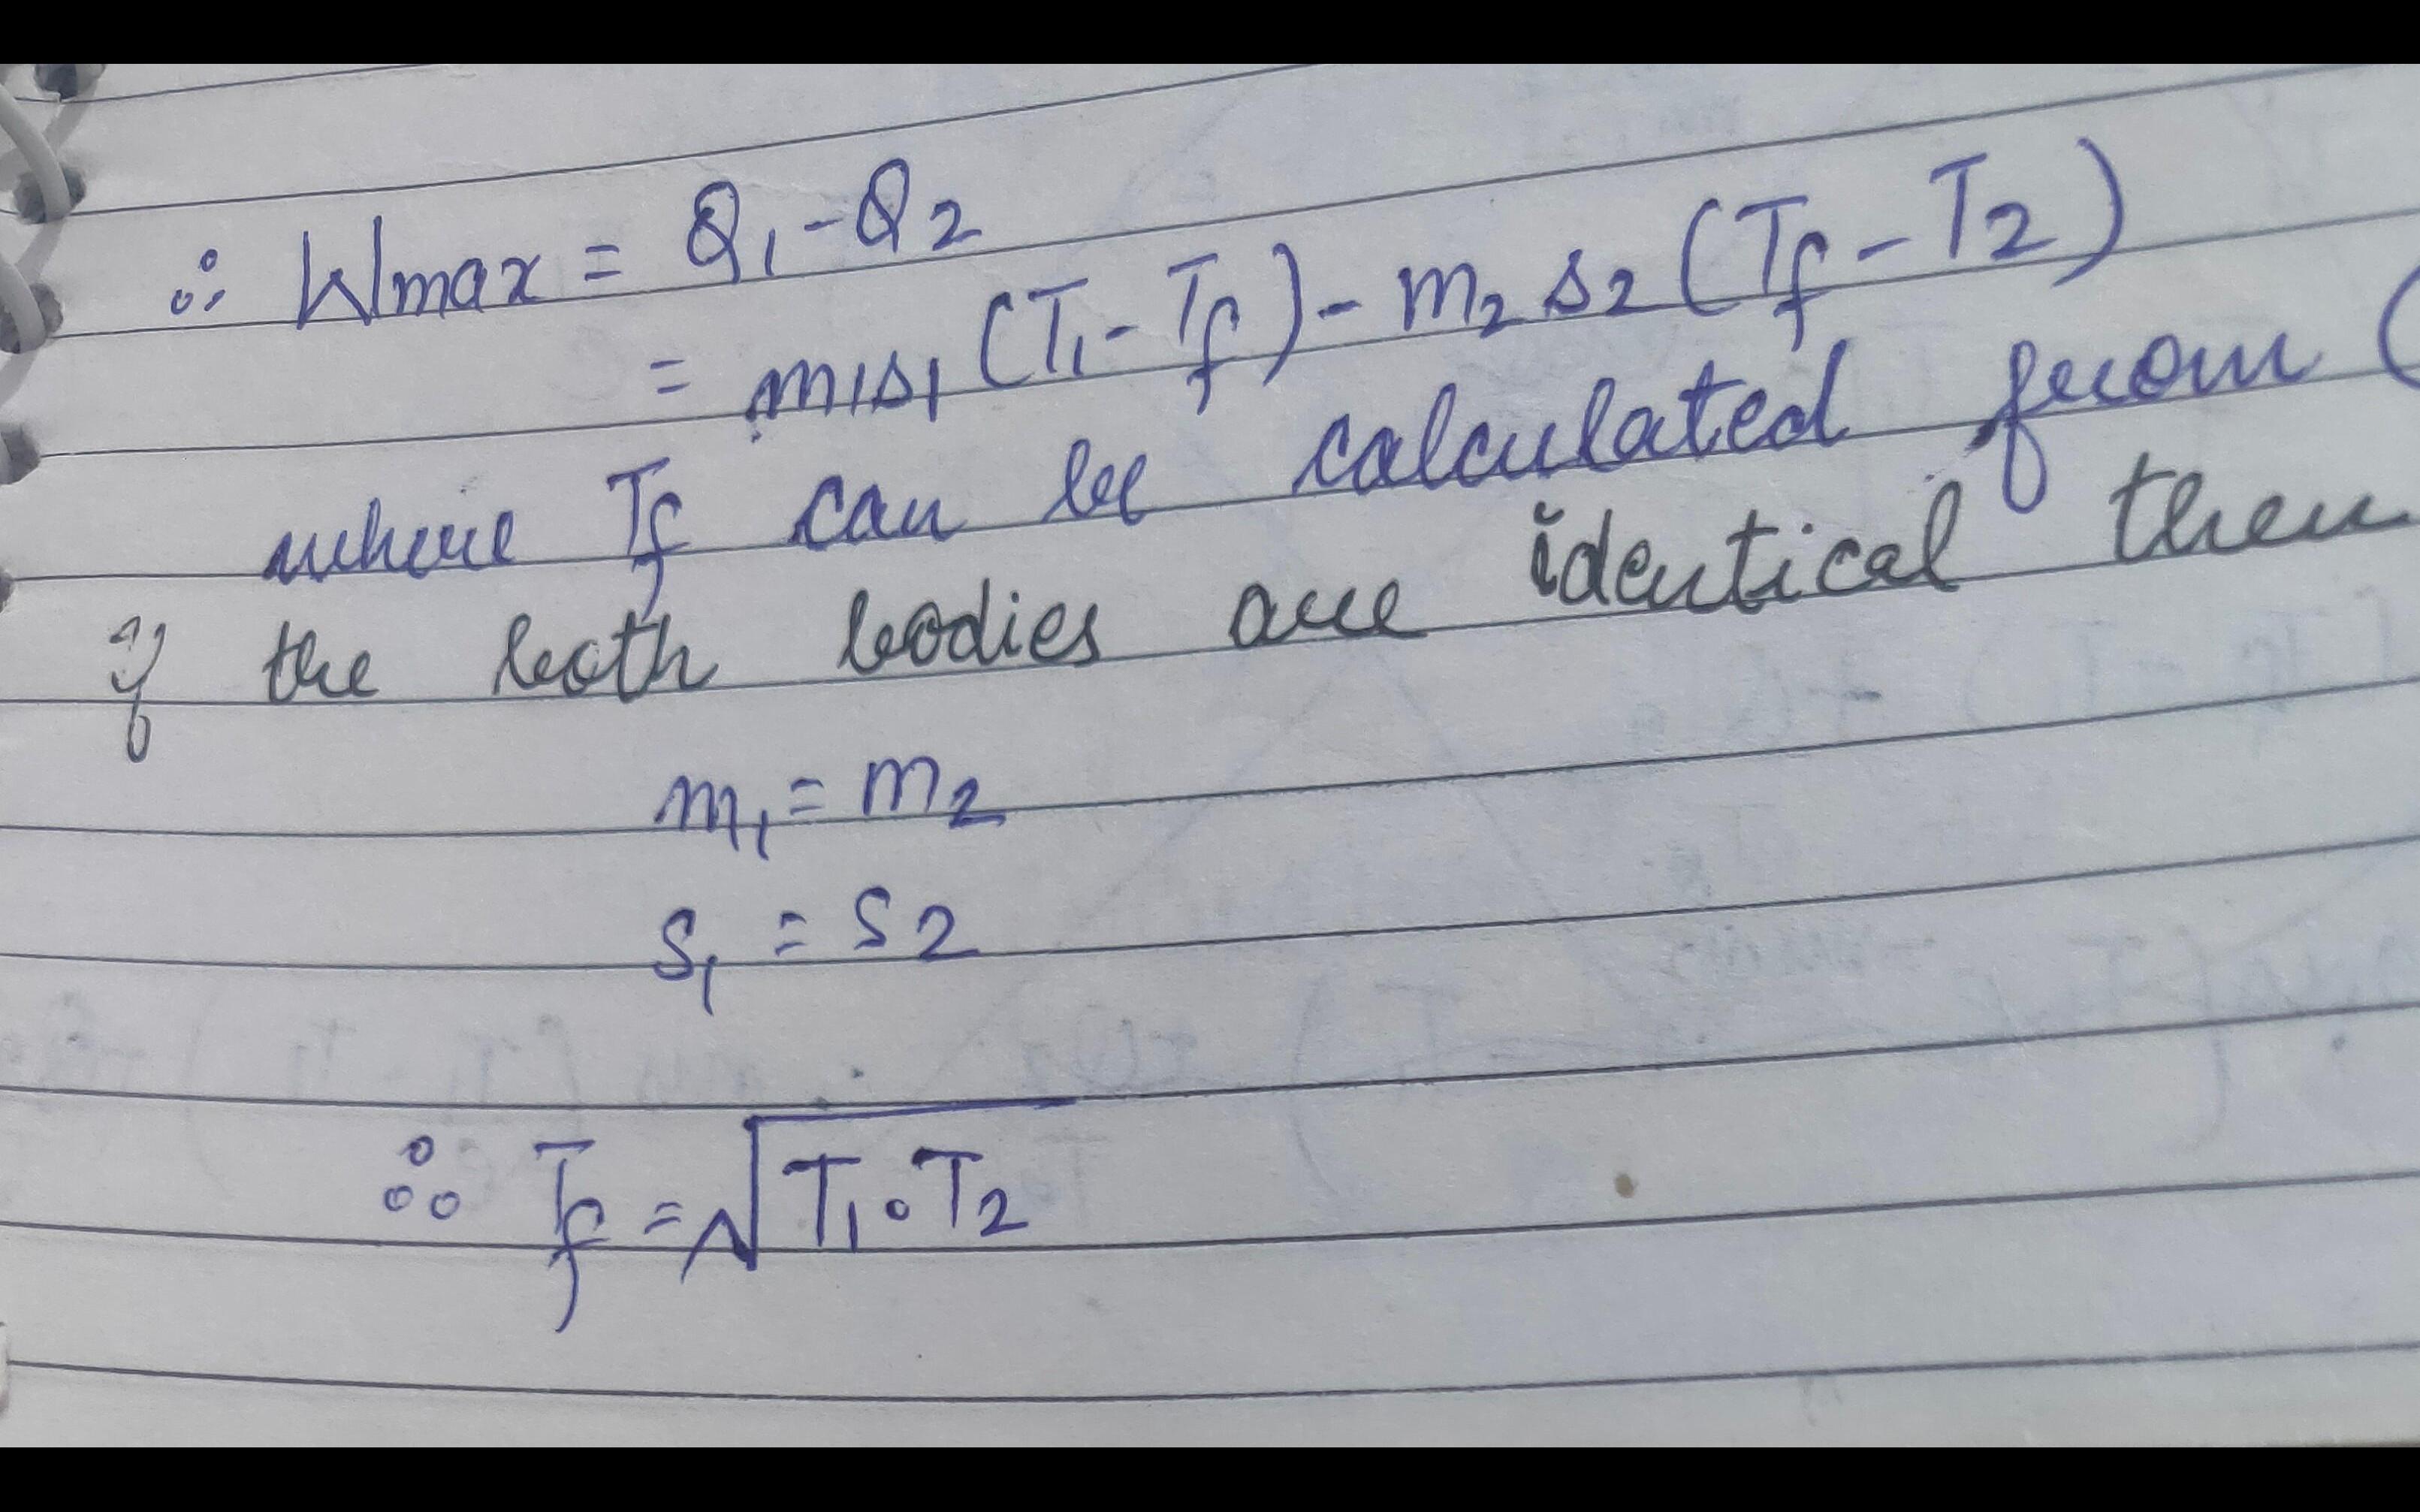 ∴ Wmax = Q1 - Q2
= m1s1 (T1 - Tf) - m2 s2 (Tf - T2)
where Tf can be calculated from (
if the both bodies are identical then
m1 = m2
s1 = s2
∴ Tf = √T1·T2